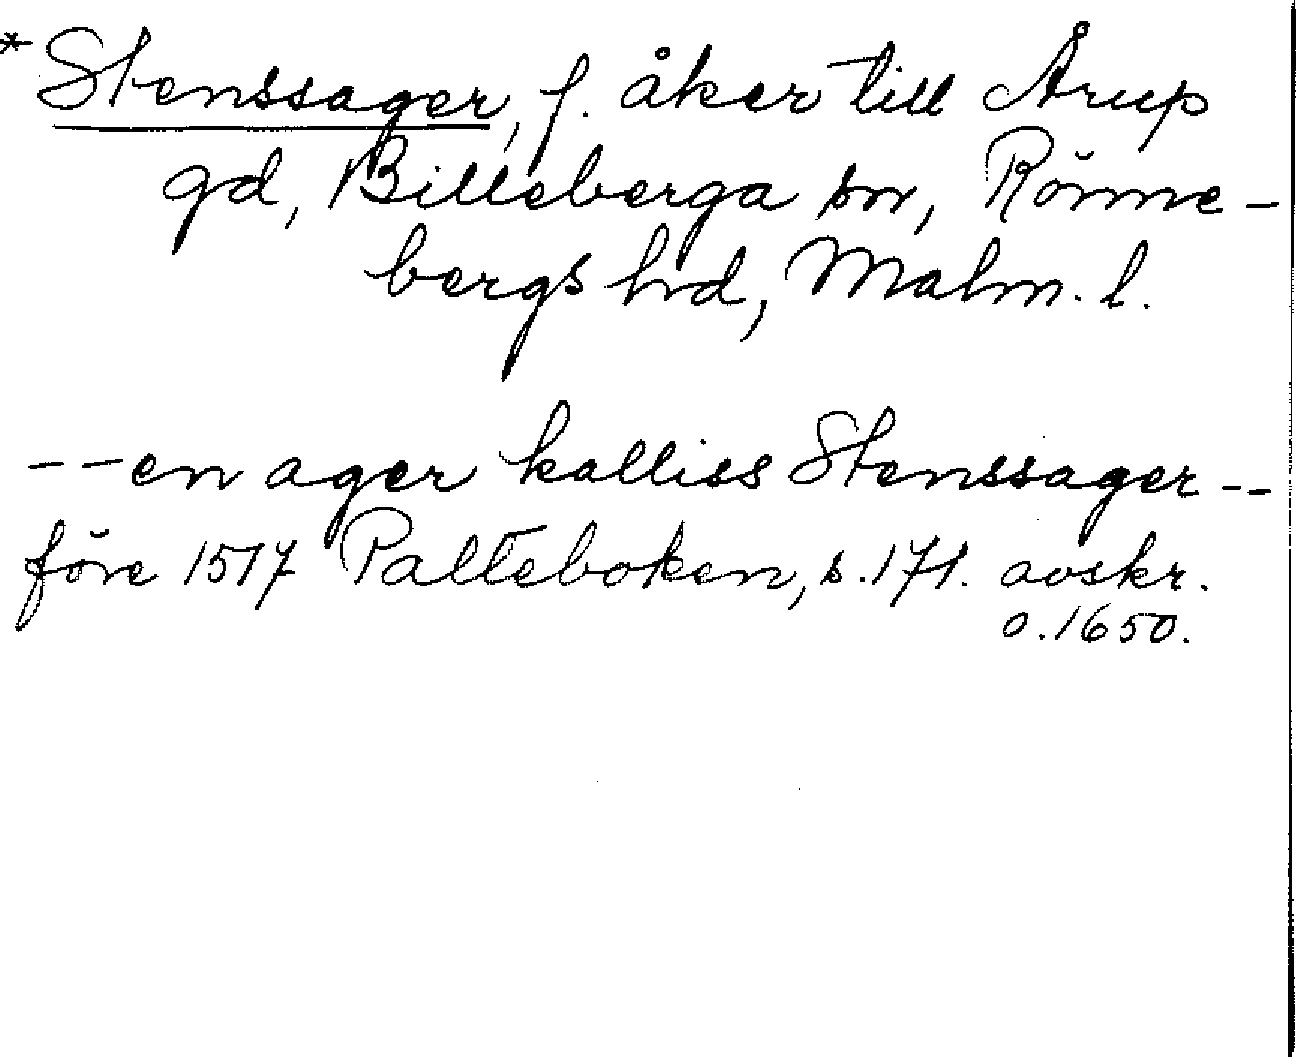 *Stenssager, f. åker till Årup
gd, Billeberga sn, Rönne-
bergs hd, Malm. l.
--en ager kalliss Stenssager--
före 1517 Palteboken, s. 171. avskr.
o. 1650.